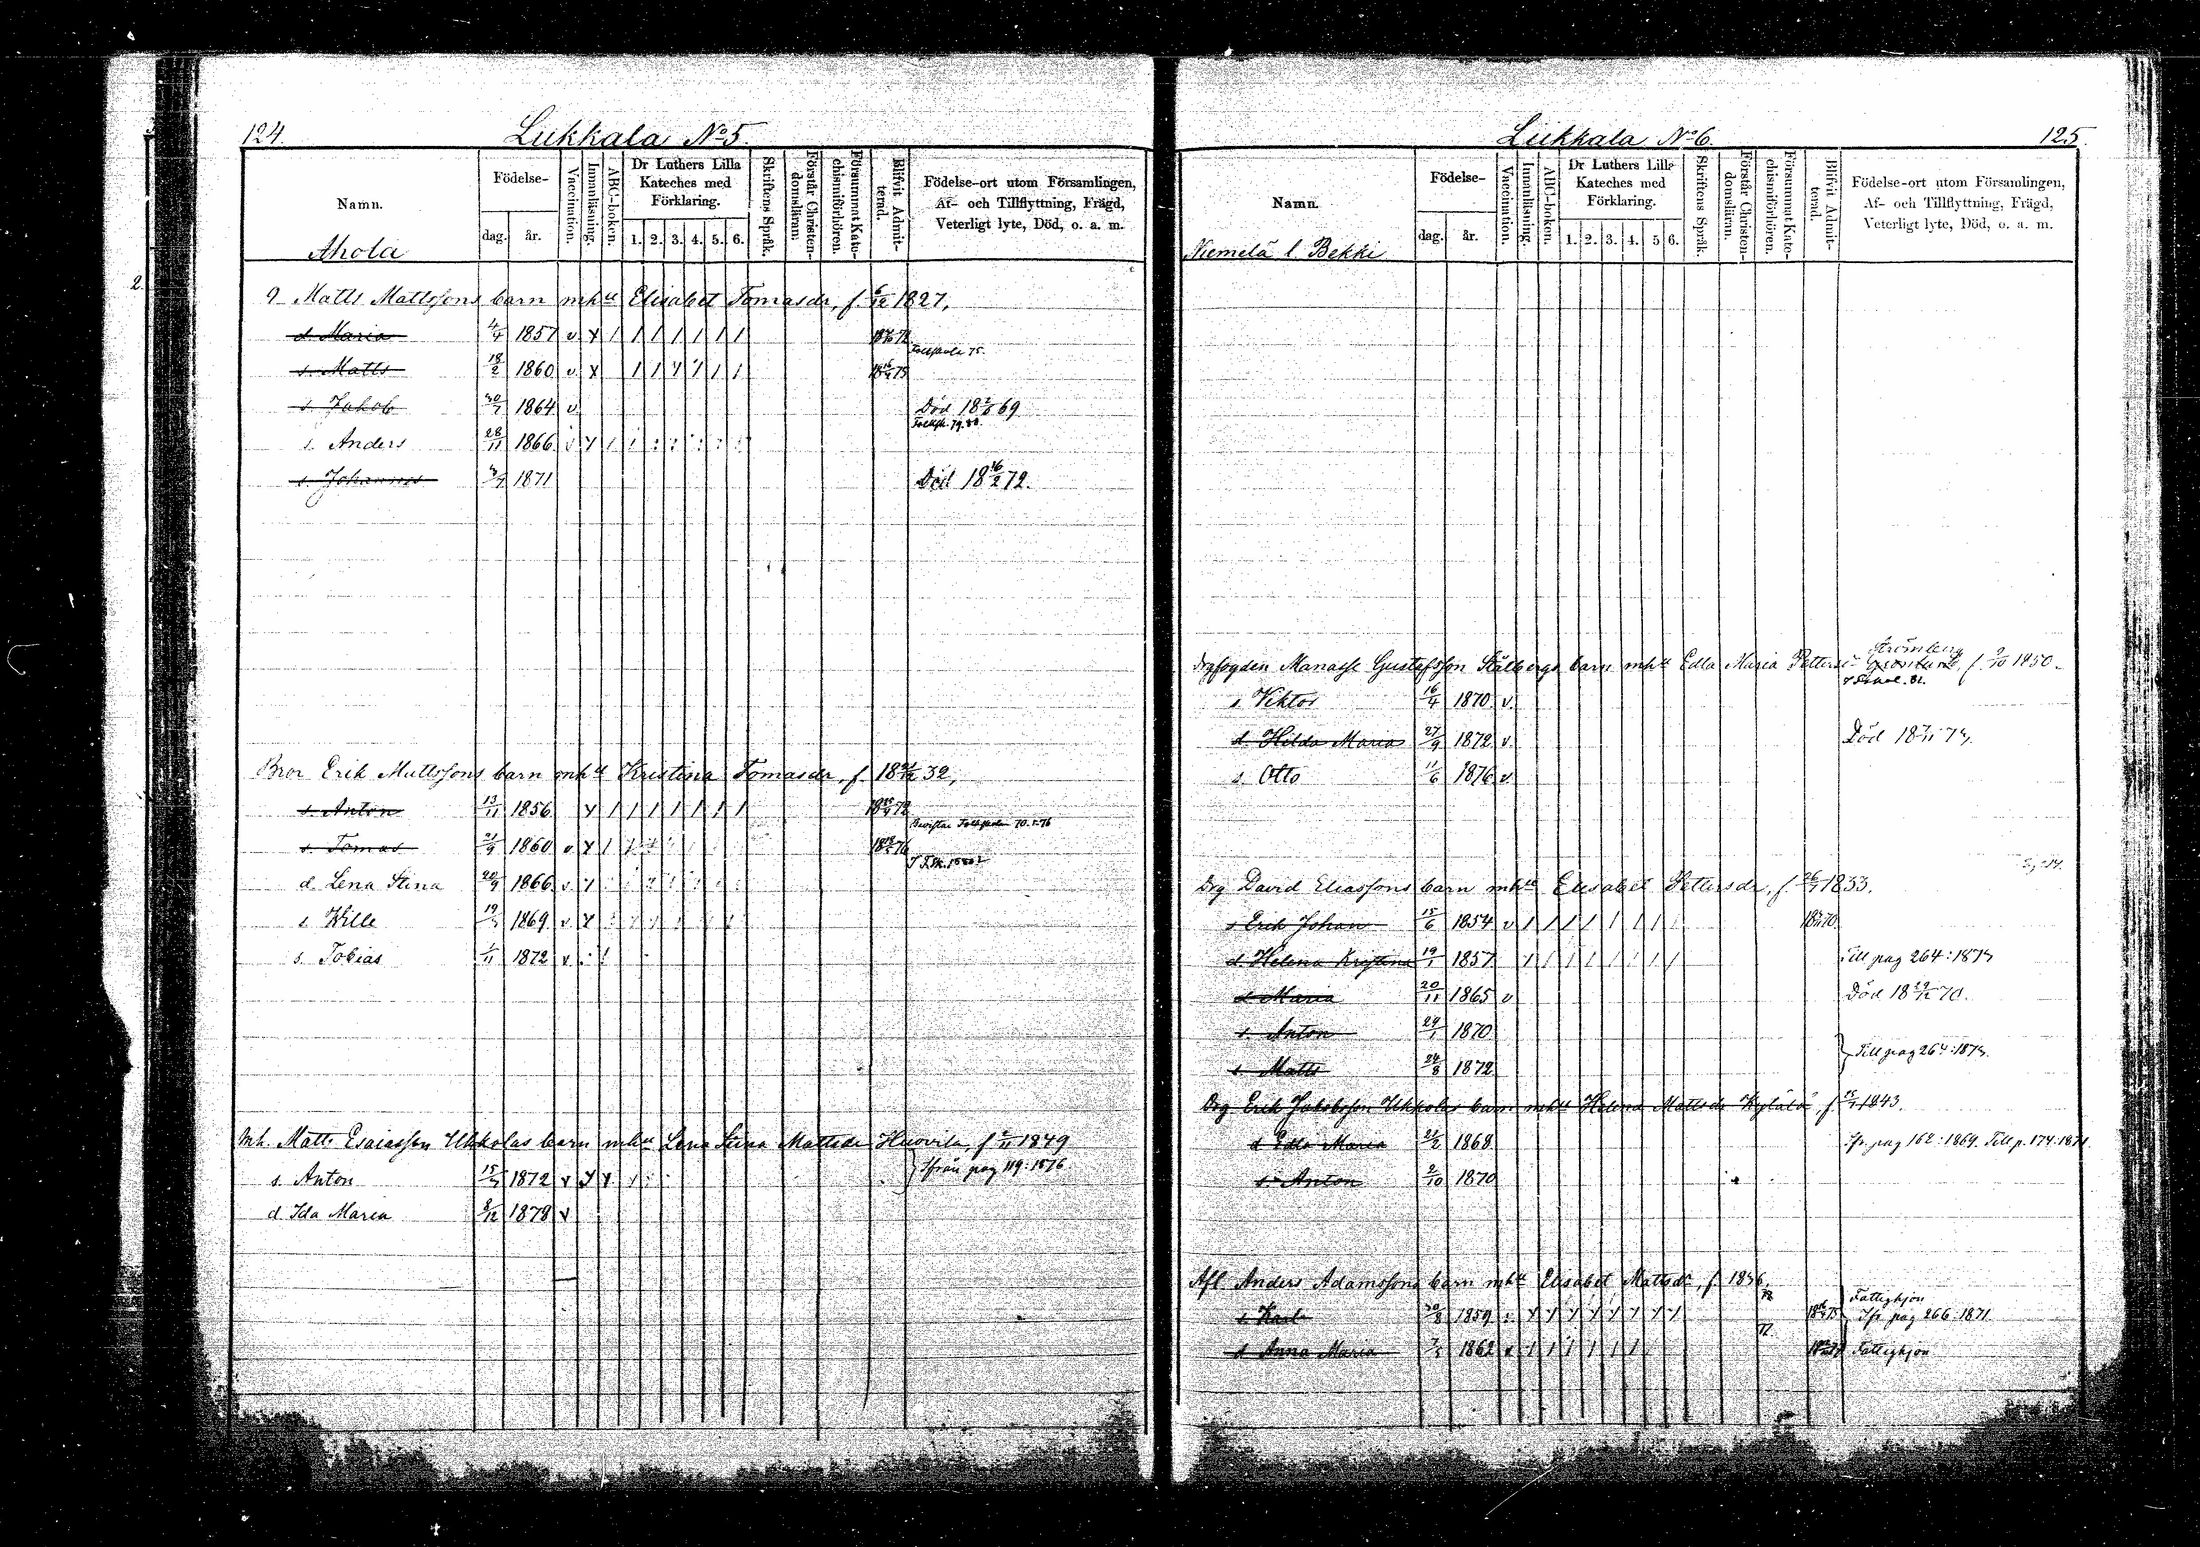 124.
Lukkala No 5.
Namn.
Födelse-
dag.
år.
Vaccination.
Innanläsning.
ABC-boken.
Dr Luthers Lilla
Kateches med
Förklaring.
1. 2. 3. 4. 5. 6.
Skriftens Språk.
Förstår Christen-
domsläran.
Försummat Kate-
chismiförhören.
Blifvit Admit-
terad.
Födelse-ort utom Församlingen,
Af- och Tillflyttning, Frägd,
Veterligt lyte, Död, o. a. m.
Ahola
Matts Mattssons barn mh Elisabet Tomasdr, f. 6/12 1827,
d. Maria 4/4 1857 v
Folkskola 75.
s. Matts 18/2 1860 v
s. Jakob 30/7 1864 v Död 69
Folksk. 79. 80.
s. Anders 28/11 1866 v
s. Johannes 1871 Död 18 16/2 72.
Bror Erik Mattssons barn mh Kristina Tomasdr, f 32,
s. Anton 13/11 1856
s. Tomas 21/9 1860 v
d. Lena Stina 20/9 1866 v
s. Wille 1869 v
s. Tobias 1/11 1872 v
Mh. Matts Esaiasson Ukkolas barn mh Lena Stina Mattsdr Huovila, f 2/11 1849
s. Anton 1872 v Ifrån pag 119: 1876
d Ida Maria 8/12 1878 v
2.
Lukkala No 6.
125.
Namn.
Födelse-
dag.
år.
Vaccination.
Innanläsning.
ABC-boken.
Dr Luthers Lilla
Kateches med
Förklaring.
1. 2. 3. 4. 5 6.
Skriftens Språk.
Förstår Christen-
domsläran.
Försummat Kate-
chismiförhören.
Blifvit Admit-
terad.
Födelse-ort utom Församlingen,
Af- och Tillflyttning, Frägd,
Veterligt lyte, Död, o. a. m.
Niemelä l. Bekki
Strömberg
Manasse Gustafsson Stålbergs barn mh Edla Maria f. 9/10 1850.
s. Viktor 16/4 1870 v.
d. Hilda Maria 27/9 1872 v Död
s. Otto 11/6 1876 v.
Drg David Eliassons barn mh Elisabet Pettersdr, f. 1833.
s Erik Johan 15/6 1854 v
d. Helena Kristina 19/1 1857 Till pag 264: 1873
d Maria 20/11 1865 v Död 18 29/12 70.
s. Anton 24/1 1870
s Matts 24/8 1872 Till pag 264: 1873.
Drg Erik Jakobsson Ukkolas barn mh Helena Mattsdr Kylälä, f. 1843.
d Edla Maria 21/2 1868 Ifr. pag 162: 1869. Till p. 174: 1871.
s. Anton 2/10 1870
Afl. Anders Adamssons barn mh Elisabet Mattsdr, f. 1836.
Fattighjon
s Karl 30/8 1859 Ifr pag 266: 1871.
d Anna Maria 1862 Fattighjon